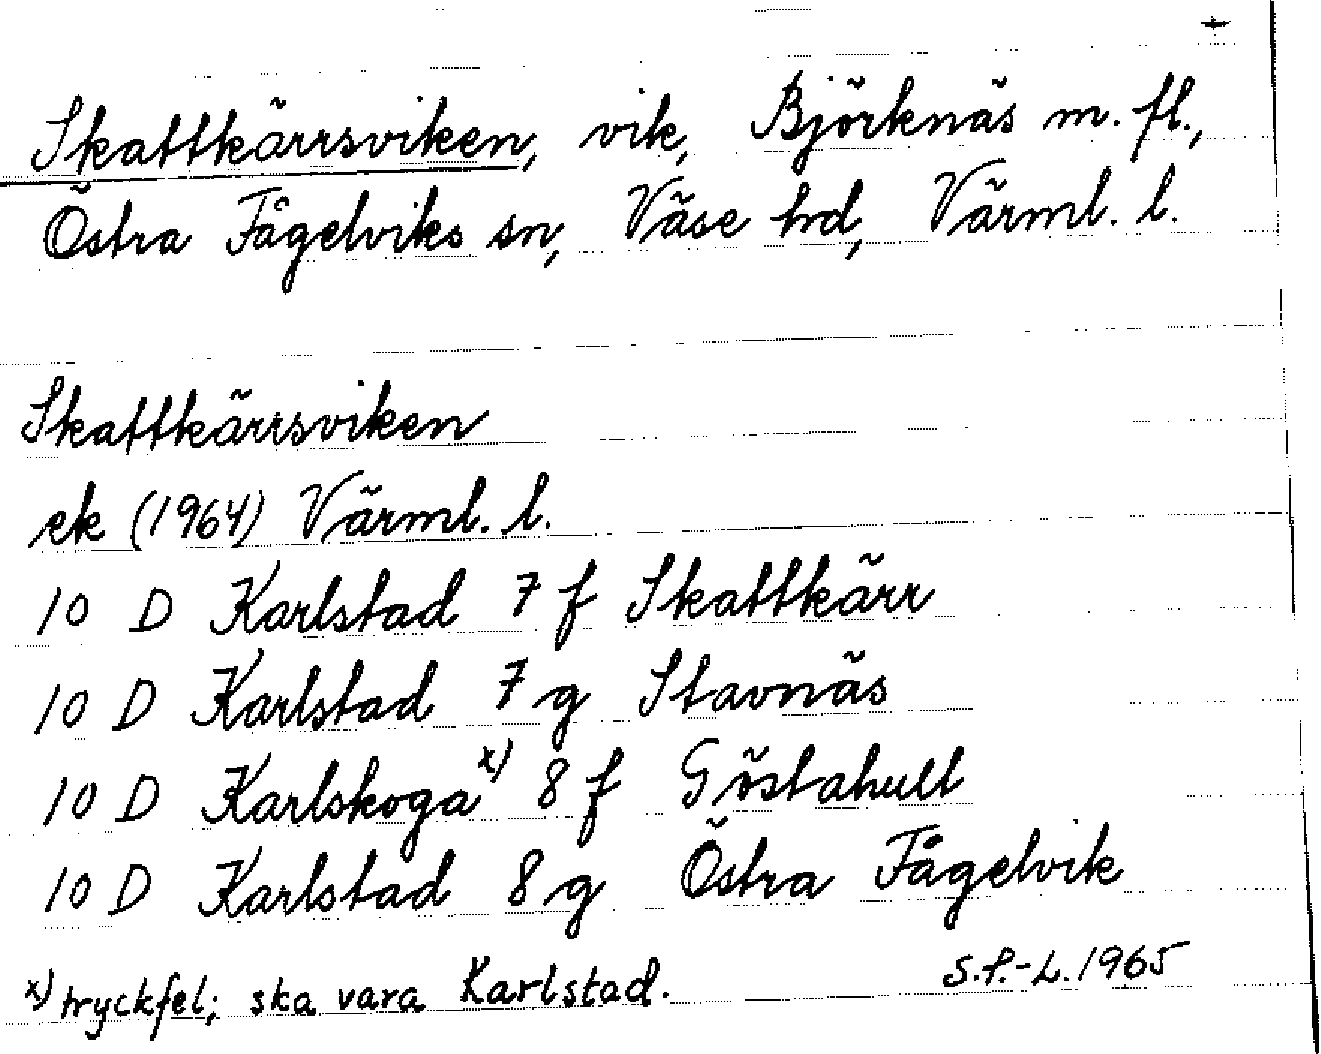 Skattkärrsviken, vik, Björknäs m. fl.,
Östra Fågelviks sn, Väse hd, Värml. l.
Skattkärrsviken
ek (1964) Värml. l.
10 D Karlstad 7 f Skattkärr
10 D Karlstad 7 g Stavnäs
10 D Karlskoga x) 8 f Göstahult
10 D Karlstad 8 g Östra Fågelvik
x) tryckfel; ska vara Karlstad.
S.P.-L. 1965